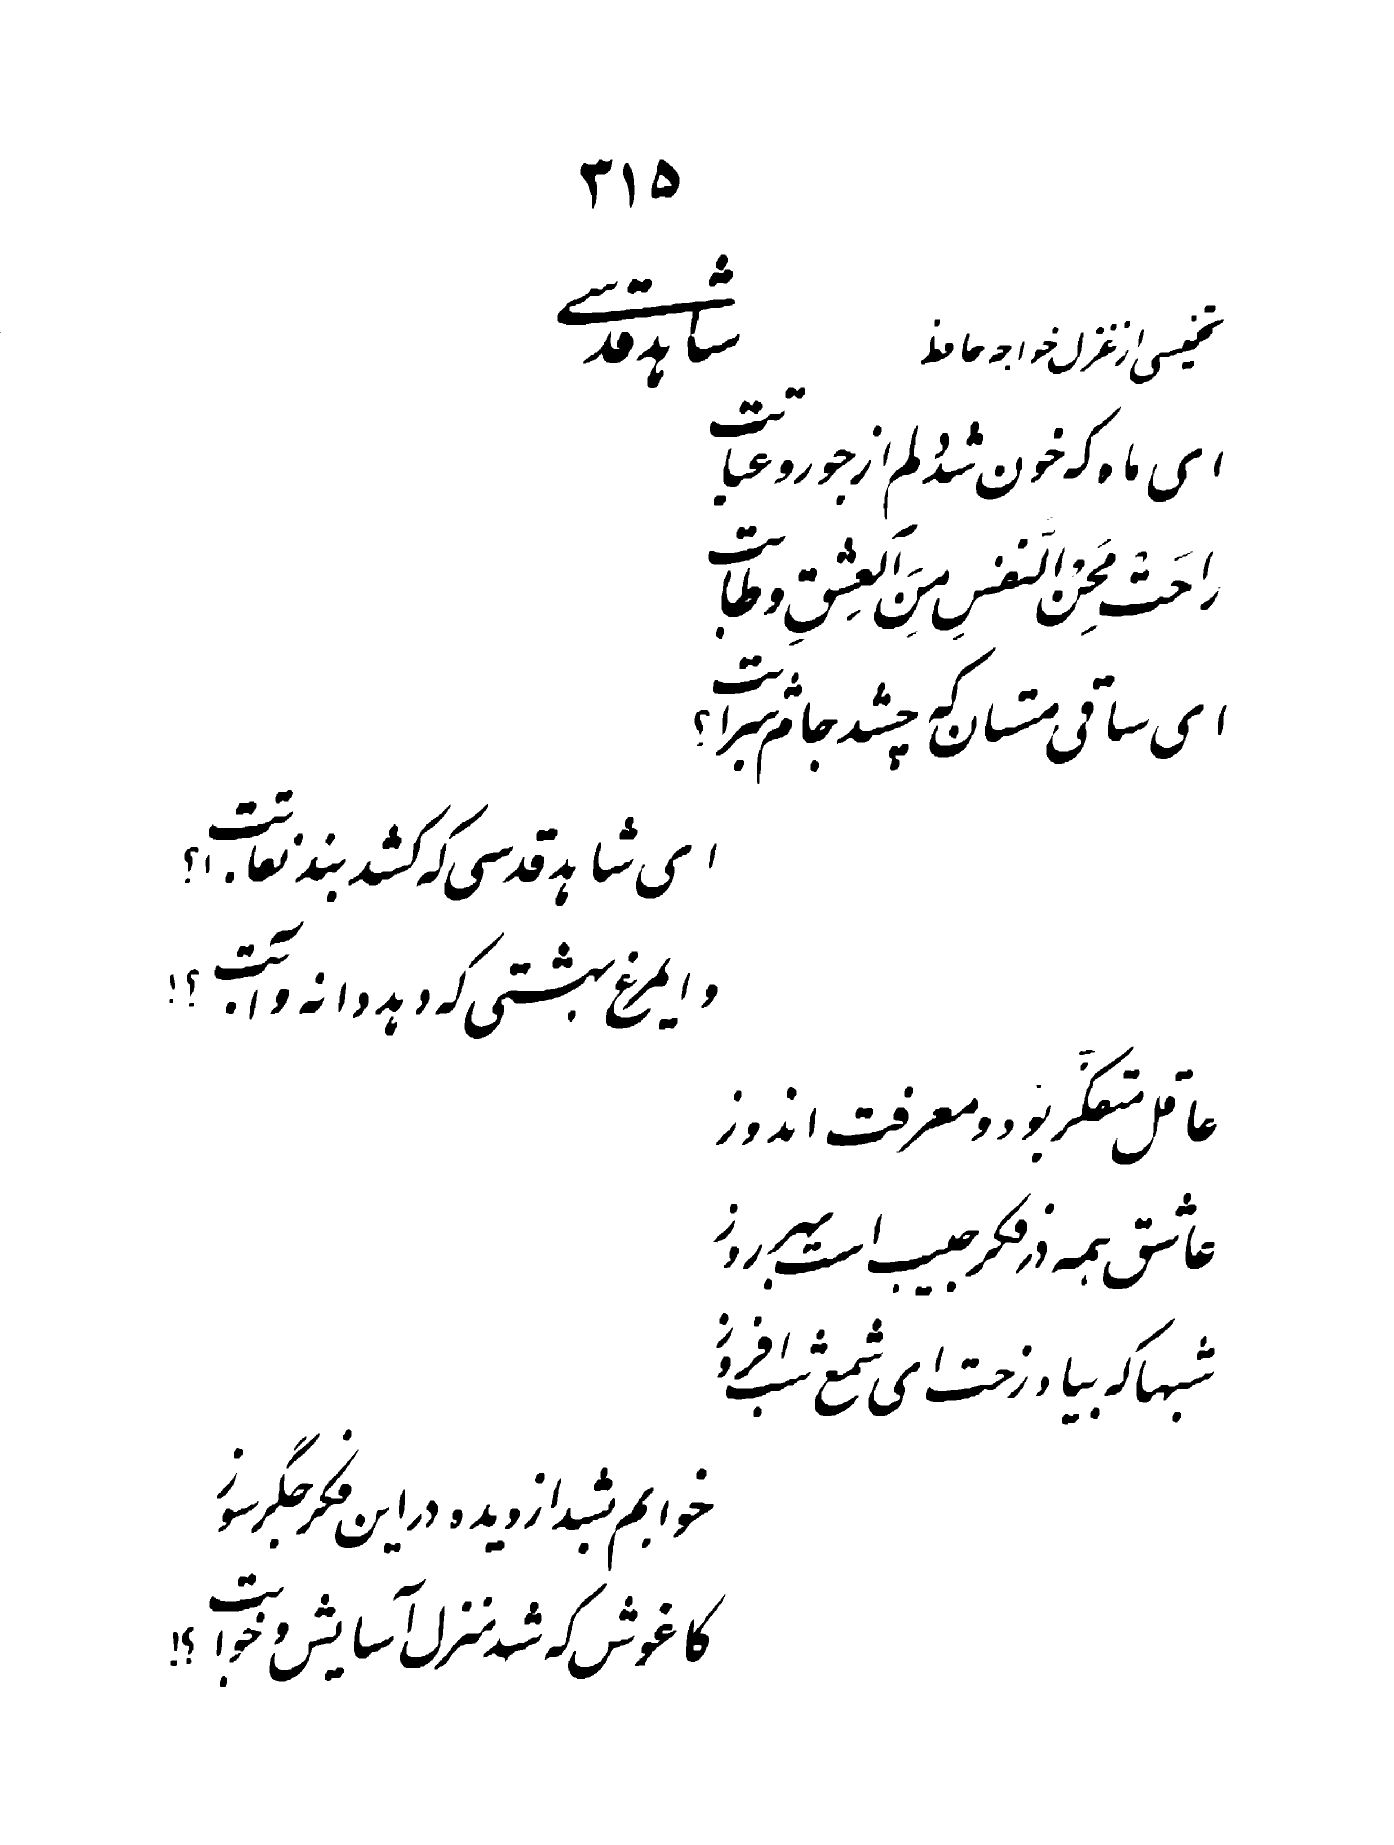 ۳۱۵
شاهد قدسی
تخمیسی از غزل خواجه حافظ
ای ماه که خون شد دلم از جور و عتابت
راحَتْ مِحَنُ النَّفسِ مِنَ العِشقِ و طابت
ای ساقی مستان که چشد جام شرابت؟
ای شاهد قدسی که کشد بند نقابت؟!
وایمرغ بهشتی که دهد دانه و آبت؟!
عاقل متفکّر بود و معرفت اندوز
عاشق همه در فکر حبیب است بهر روز
شبها که بیاد رخت ای شمع شب افروز
خوابم بشد از دیده در این فکر جگرسوز
کاغوش که شد منزل آسایش و خوابت؟!